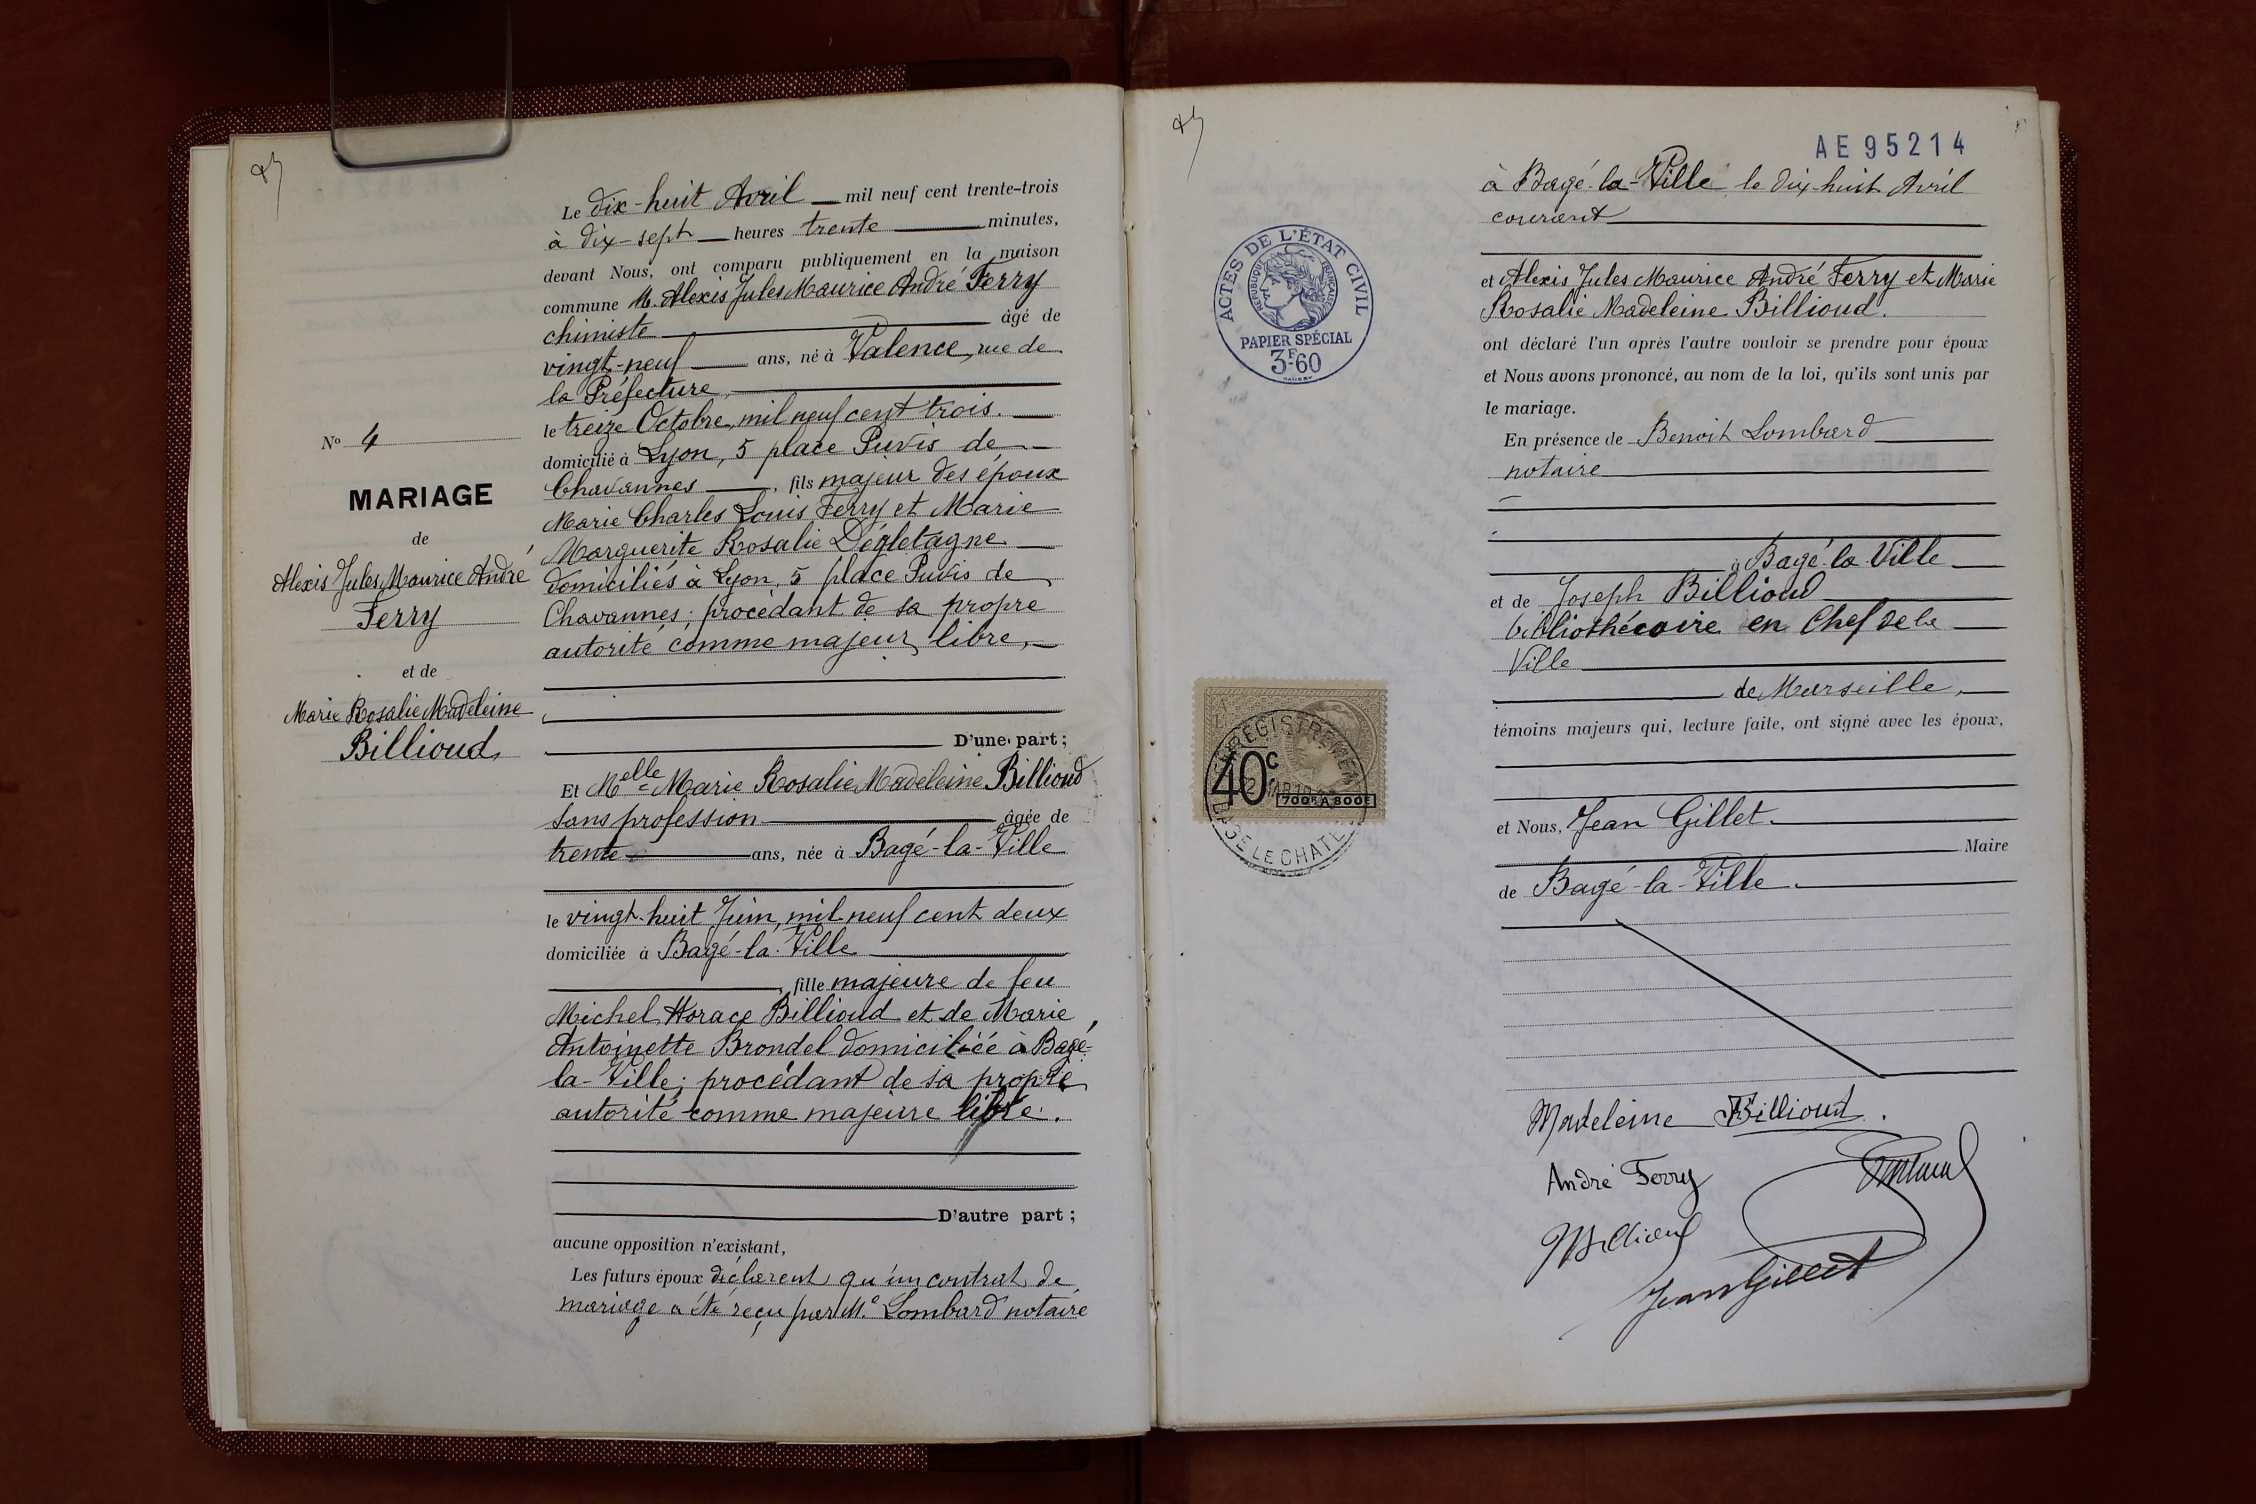 Le dix-huit Avril mil neuf cent trente-trois
à dix-sept heures trente minutes,
devant Nous, ont comparu publiquement en la maison
commune M. Alexis Jules Maurice André Ferry
chimiste âgé de
vingt-neuf ans, né à Valence, rue de
la Préfecture,
le treize Octobre, mil neuf cent trois.
domicilié à Lyon, 5 place Puvis de
Chavannes, fils majeur des époux
Marie Charles Louis Ferry et Marie
Marguerite Rosalie Dégletagne
domiciliés à Lyon, 5 place Puvis de
Chavannes; procédant de sa propre
autorité comme majeur libre,
D'une part;
Et Melle Marie Rosalie Madeleine Billioud
sans profession âgée de
trente ans, née à Bagé-la-Ville
le vingt-huit Juin, mil neuf cent deux
domiciliée à Bagé-la-Ville
, fille majeure de feu
Michel Horace Billioud et de Marie
Antoinette Brondel domiciliée à Bagé-
la-Ville; procédant de sa propre
autorité comme majeure libre.
D'autre part;
aucune opposition n'existant,
Les futurs époux déclarent qu'un contrat de
mariage a été reçu par Me Lombard notaire
No 4
MARIAGE
de
Alexis Jules Maurice André
Ferry
et de
Marie Rosalie Madeleine
Billioud
AE 95214
à Bagé-la-Ville le dix-huit Avril
courant
et Alexis Jules Maurice André Ferry et Marie
Rosalie Madeleine Billioud.
ont déclaré l'un après l'autre vouloir se prendre pour époux
et Nous avons prononcé, au nom de la loi, qu'ils sont unis par
le mariage.
En présence de Benoit Lombard
notaire
à Bagé-la-Ville
et de Joseph Billioud
bibliothécaire en Chef de la
Ville
de Marseille,
témoins majeurs qui, lecture faite, ont signé avec les époux,
et Nous, Jean Gillet.
Maire
de Bagé-la-Ville.
Madeleine Billioud.
André Ferry
JBillioud
Jean Gillet
ACTES DE L'ÉTAT CIVIL
RÉPUBLIQUE FRANÇAISE
PAPIER SPÉCIAL
3F60
ENREGISTREMENT
40c
700F À 800F
BAGE LE CHATEL